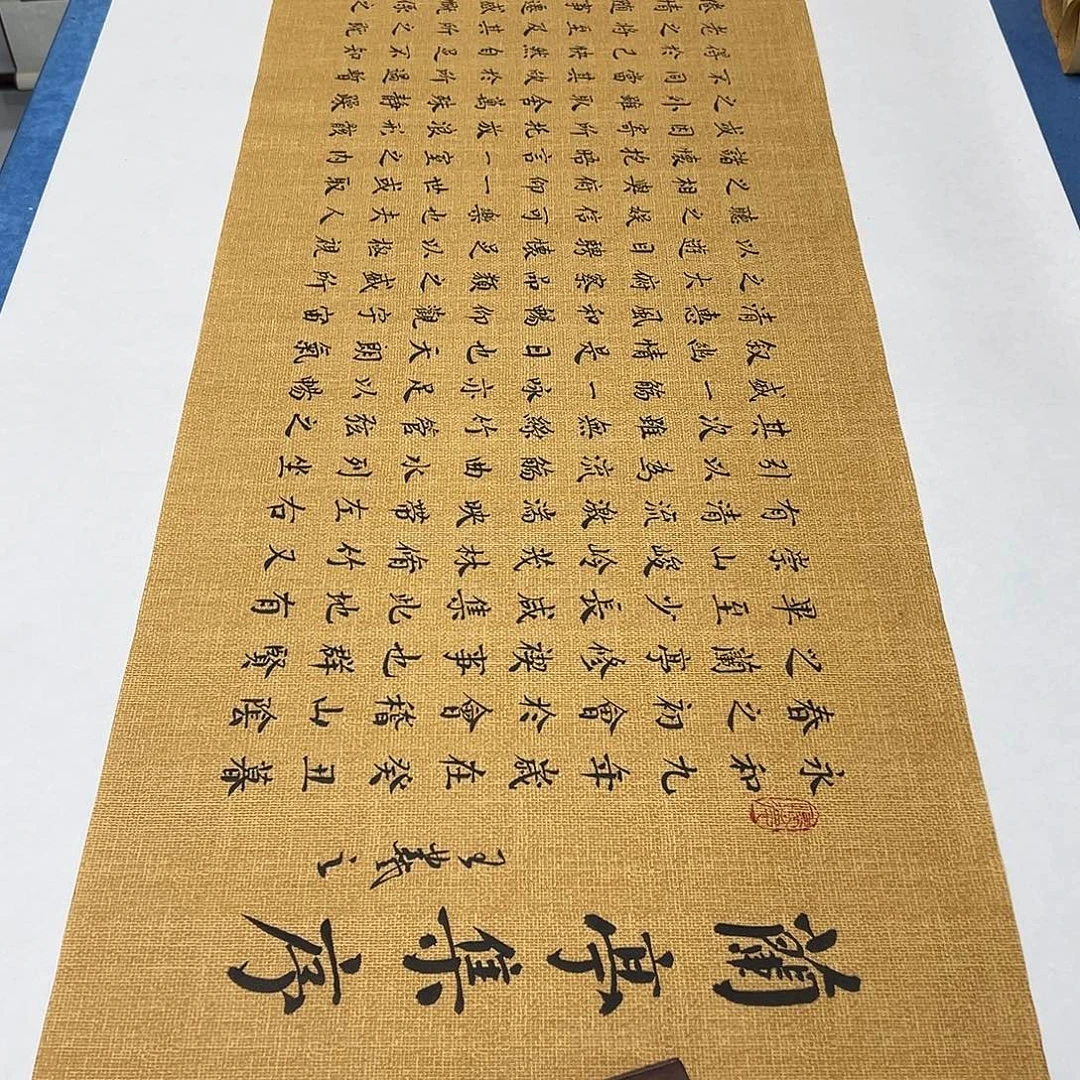 蘭亭集序
王羲之
永和九年歲在癸丑暮
春之初會於會稽山陰
之蘭亭修禊事也群賢
畢至少長咸集此地有
崇山峻岭茂林脩竹又
有清流激湍映帶左右
引以為流觴曲水列坐
其次雖無絲竹管弦之
盛一觴一咏亦足以暢
叙幽情是日也天朗氣
清惠風和暢仰觀宇宙
之大俯察品類之盛所
以遊目騁懷足以極視
聽之娛信可樂也夫人
之相與俯仰一世或取
諸懷抱晤言一室之內
或因寄所托放浪形骸
之外雖取舍萬殊靜躁
不同當其欣於所遇暫
得於己快然自足不知
老之將至及其所之既
情隨事遷感慨係之